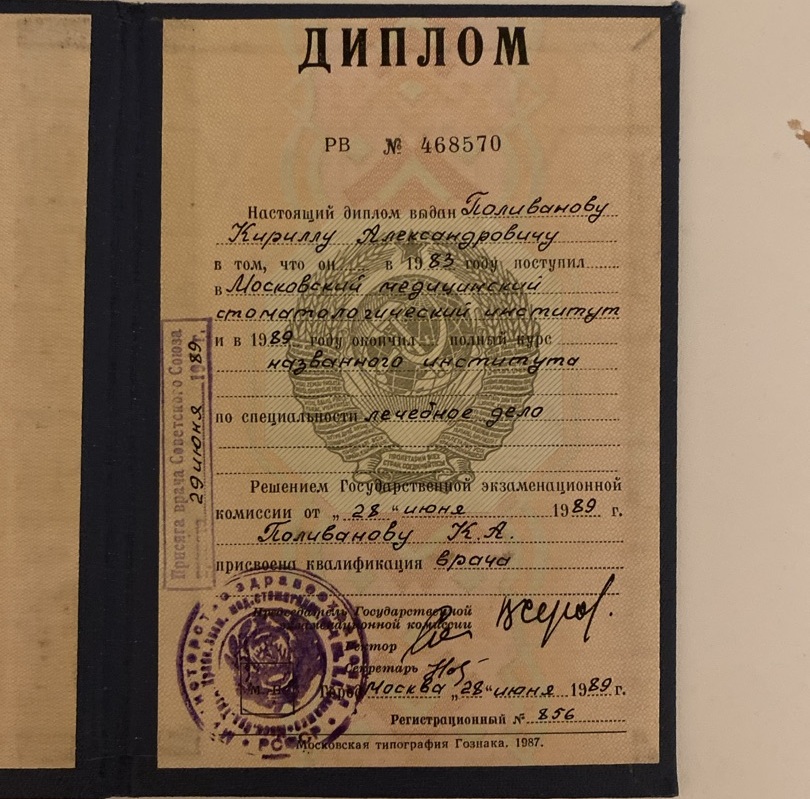 ДИПЛОМ
РВ № 468570
Настоящий диплом выдан Поливанову
Кириллу Александровичу
в том, что он в 1983 году поступил
в Московский медицинский
стоматологический институт
и в 1989 году окончил полный курс
названного института
по специальности лечебное дело
Решением Государственной экзаменационной
комиссии от „28“ июня 1989 г.
Поливанову К.А.
присвоена квалификация врача
Председатель Государственной
экзаменационной комиссии
Ректор
Секретарь
Город Москва „28“ июня 1989 г.
Регистрационный № 856
Московская типография Гознака. 1987.
Присяга врача Советского Союза
29 июня 1989 г.
М. П.
РСФСР
ПРОЛЕТАРИИ ВСЕХ
СТРАН, СОЕДИНЯЙТЕСЬ!